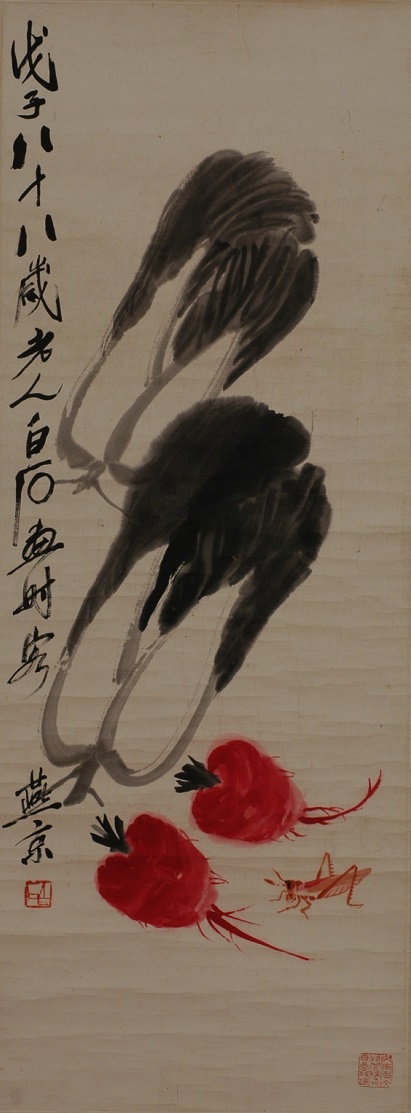 戊子八十八歲老人白石畫时客燕京